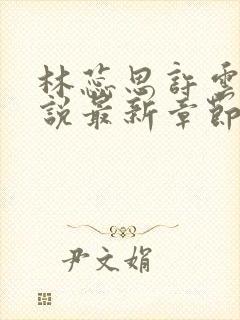 林蕊思許雲
說最新章節
尹文娟